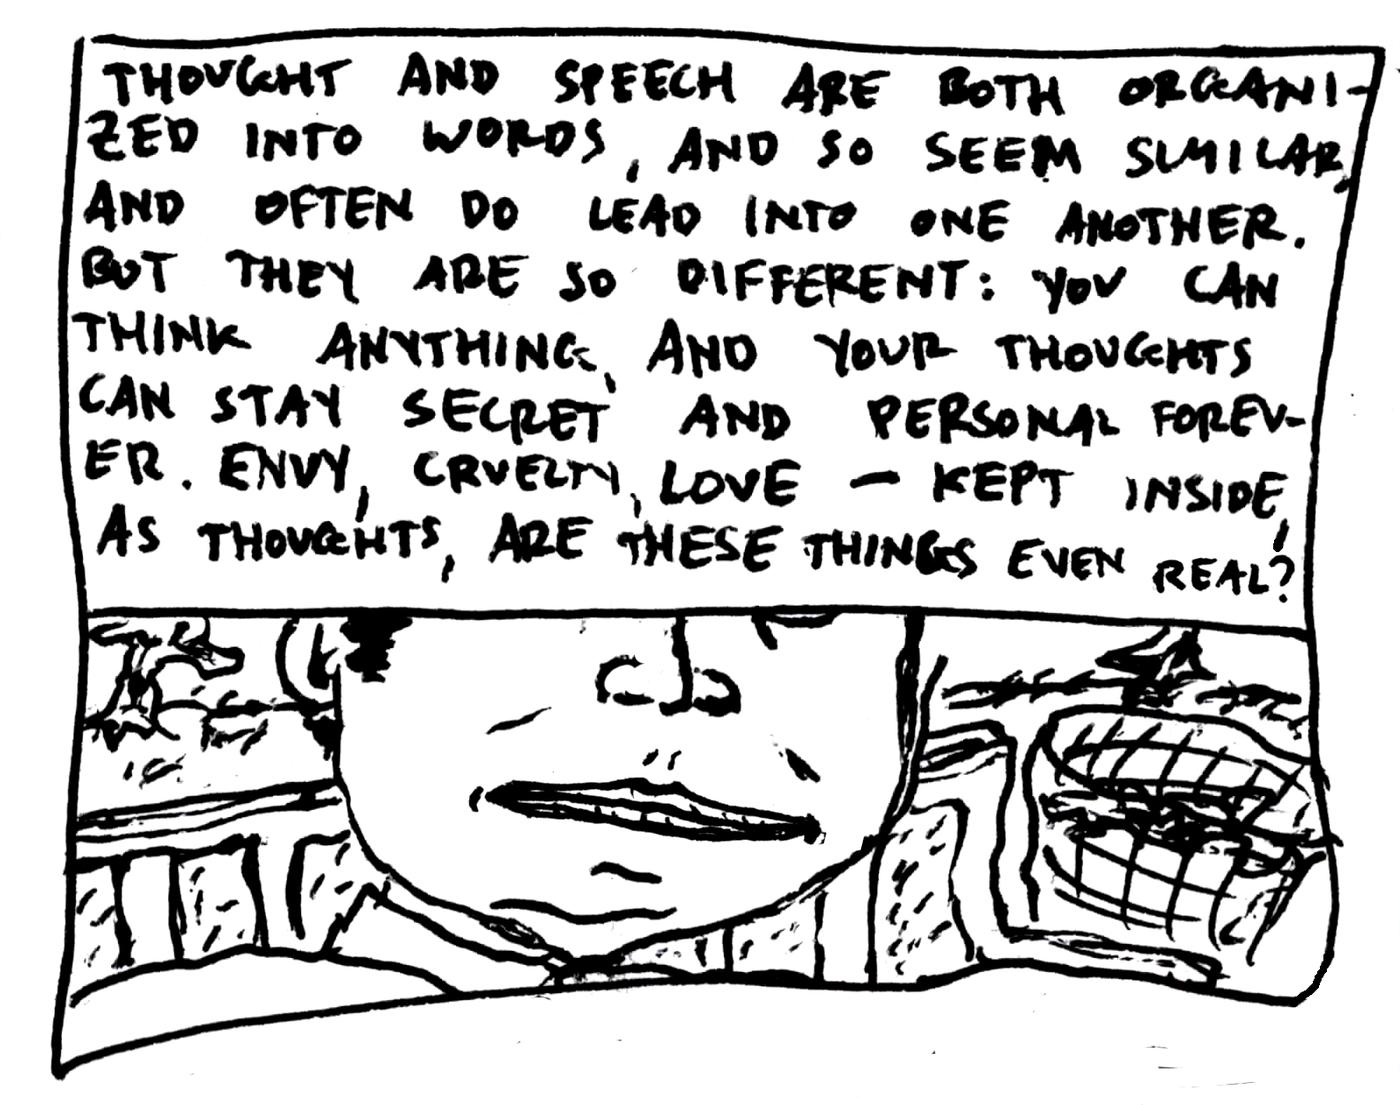 THOUGHT AND SPEECH ARE BOTH ORGANI-
ZED INTO WORDS, AND SO SEEM SIMILAR,
AND OFTEN DO LEAD INTO ONE ANOTHER.
BUT THEY ARE SO DIFFERENT: YOU CAN
THINK ANYTHING, AND YOUR THOUGHTS
CAN STAY SECRET AND PERSONAL FOREV-
ER. ENVY, CRUELTY, LOVE – KEPT INSIDE,
AS THOUGHTS, ARE THESE THINGS EVEN REAL?